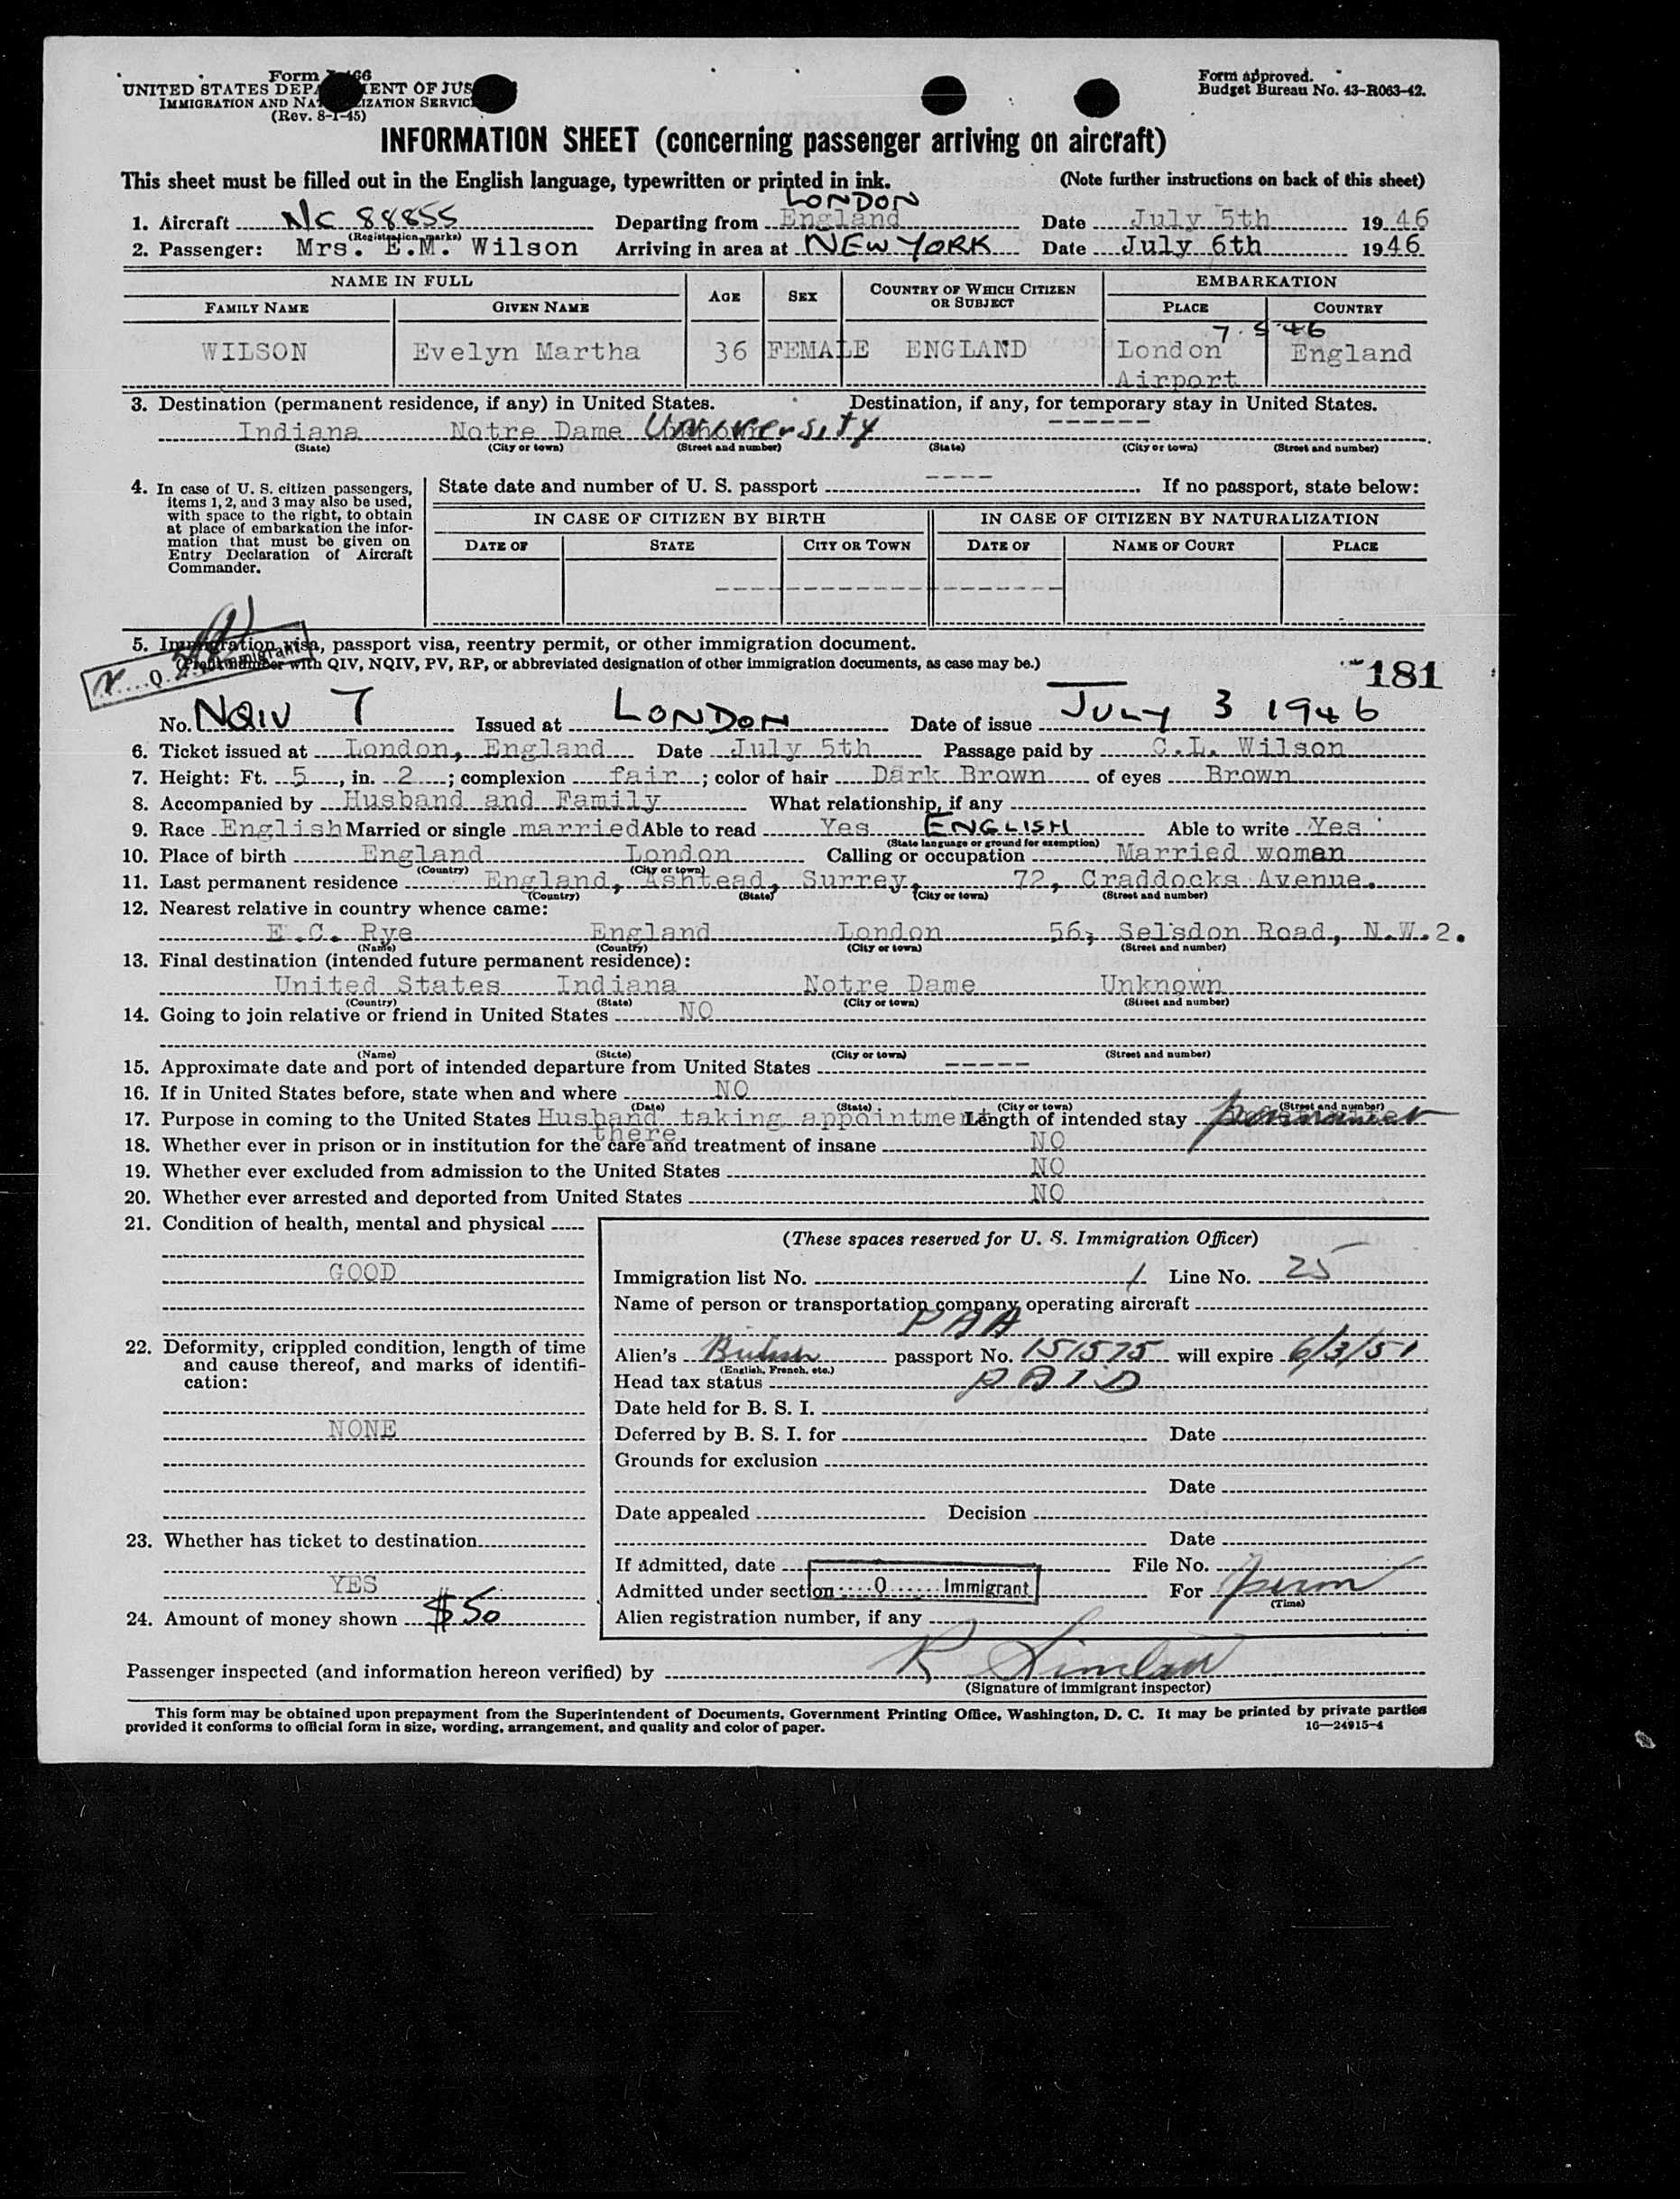 Form I-466
UNITED STATES DEPARTMENT OF JUSTICE
IMMIGRATION AND NATURALIZATION SERVICE
(Rev. 8-1-45)
Form approved.
Budget Bureau No. 43-R063-42.
INFORMATION SHEET (concerning passenger arriving on aircraft)
This sheet must be filled out in the English language, typewritten or printed in ink. (Note further instructions on back of this sheet)
LONDON
1. Aircraft NC 88855 Departing from England Date July 5th 1946
(Registration marks)
2. Passenger: Mrs. E.M. Wilson Arriving in area at NEW YORK Date July 6th 1946
NAME IN FULL AGE SEX COUNTRY OF WHICH CITIZEN OR SUBJECT EMBARKATION
FAMILY NAME GIVEN NAME PLACE COUNTRY
7 5 46
WILSON Evelyn Martha 36 FEMALE ENGLAND London Airport England
3. Destination (permanent residence, if any) in United States. Destination, if any, for temporary stay in United States.
Indiana Notre Dame University ------
(State) (City or town) (Street and number) (State) (City or town) (Street and number)
4. In case of U. S. citizen passengers, items 1, 2, and 3 may also be used, with space to the right, to obtain at place of embarkation the information that must be given on Entry Declaration of Aircraft Commander.
State date and number of U. S. passport ---- If no passport, state below:
IN CASE OF CITIZEN BY BIRTH IN CASE OF CITIZEN BY NATURALIZATION
DATE OF STATE CITY OR TOWN DATE OF NAME OF COURT PLACE
5. Immigration visa, passport visa, reentry permit, or other immigration document.
(Prefix number with QIV, NQIV, PV, RP, or abbreviated designation of other immigration documents, as case may be.)
N Q Immigrant
181
No. NQIV 7 Issued at LONDON Date of issue JULY 3 1946
6. Ticket issued at London, England Date July 5th Passage paid by C.L. Wilson
7. Height: Ft. 5, in. 2; complexion fair; color of hair Dark Brown of eyes Brown
8. Accompanied by Husband and Family What relationship, if any
9. Race English Married or single married Able to read Yes ENGLISH Able to write Yes
(State language or ground for exemption)
10. Place of birth England London Calling or occupation Married woman
(Country) (City or town)
11. Last permanent residence England, Ashtead, Surrey, 72, Craddocks Avenue.
(Country) (State) (City or town) (Street and number)
12. Nearest relative in country whence came:
E.C. Rye England London 56, Selsdon Road, N.W.2.
(Name) (Country) (City or town) (Street and number)
13. Final destination (intended future permanent residence):
United States Indiana Notre Dame Unknown
(Country) (State) (City or town) (Street and number)
14. Going to join relative or friend in United States NO
(Name) (State) (City or town) (Street and number)
15. Approximate date and port of intended departure from United States -----
16. If in United States before, state when and where NO
(Date) (State) (City or town) (Street and number)
17. Purpose in coming to the United States Husband taking appointment there Length of intended stay permanent
18. Whether ever in prison or in institution for the care and treatment of insane NO
19. Whether ever excluded from admission to the United States NO
20. Whether ever arrested and deported from United States NO
21. Condition of health, mental and physical
GOOD
22. Deformity, crippled condition, length of time and cause thereof, and marks of identification:
NONE
23. Whether has ticket to destination
YES
24. Amount of money shown $50
(These spaces reserved for U. S. Immigration Officer)
Immigration list No. 1 Line No. 25
Name of person or transportation company operating aircraft
PAA
Alien's British passport No. 151575 will expire 6/3/51
(English, French, etc.)
Head tax status PAID
Date held for B. S. I.
Deferred by B. S. I. for Date
Grounds for exclusion
Date
Date appealed Decision
Date
If admitted, date File No.
Admitted under section Q Immigrant For perm
(Time)
Alien registration number, if any
Passenger inspected (and information hereon verified) by
(Signature of immigrant inspector)
This form may be obtained upon prepayment from the Superintendent of Documents, Government Printing Office, Washington, D. C. It may be printed by private parties
provided it conforms to official form in size, wording, arrangement, and quality and color of paper. 16—24915-4